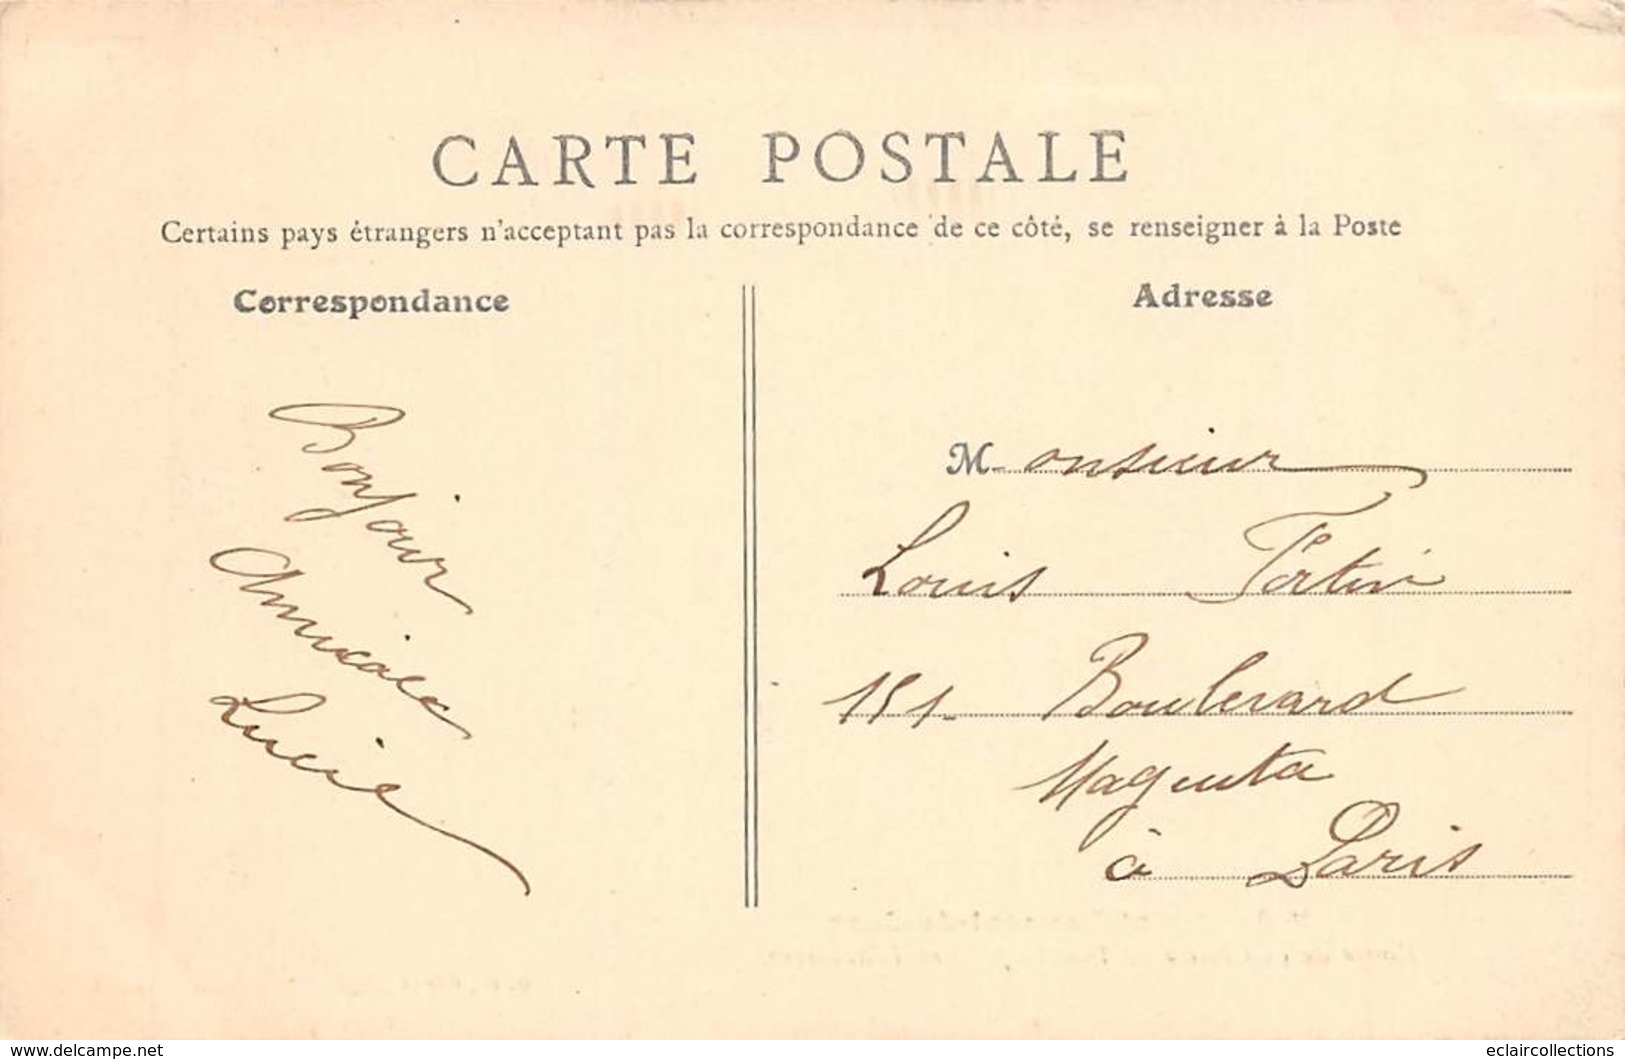 CARTE POSTALE
Certains pays étrangers n'acceptant pas la correspondance de ce côté, se renseigner à la Poste
Correspondance
Bonjour
Amicale
Lucie
Adresse
Monsieur
Louis Fertin
151 Boulevard
Magenta
à Paris
www.delcampe.net
eclaircollections